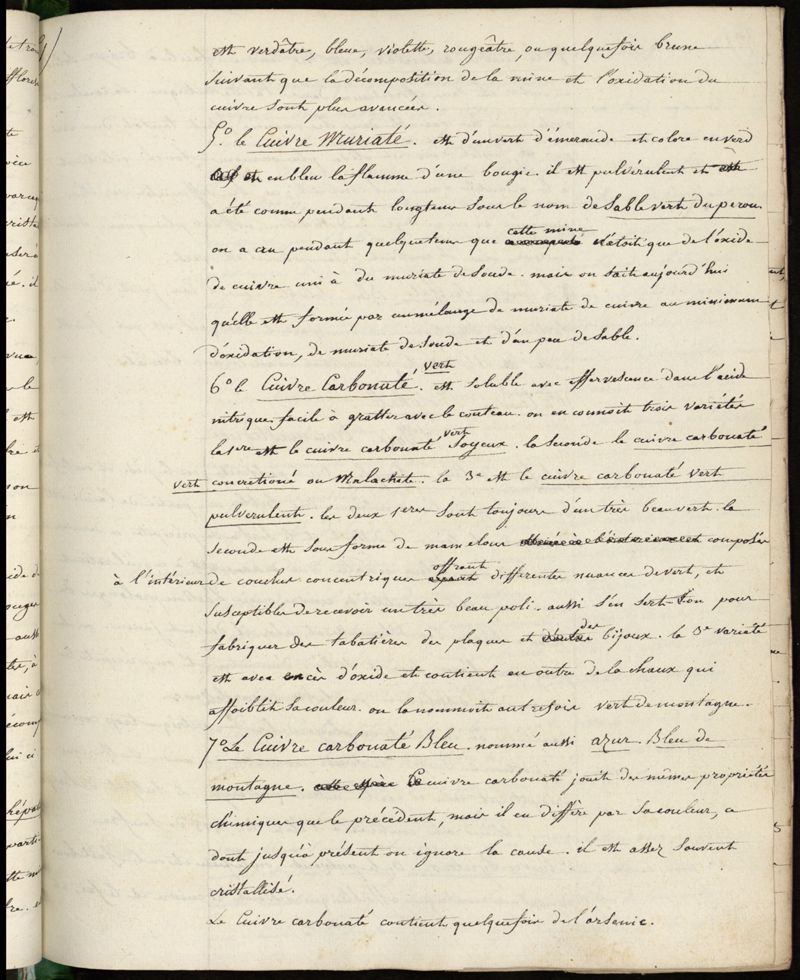 est verdâtre, bleue, violette, rougeâtre, ou quelquefois brune
suivant que la décomposition de la mine et l'oxidation du
cuivre sont plus avancées.
5.° le Cuivre Muriaté. est d'un vert d'émeraude et colore en verd
et en bleu la flamme d'une bougie. il est pulvérulent et
a été connu pendant longtems sous le nom de sable vert du perou
on a cru pendant quelque tems que cette mine n'étoit que de l'oxide
de cuivre uni à du muriate de soude. mais on sait aujourd'hui
qu'elle est formée par un mélange de muriate de cuivre au minimum
d'oxidation, de muriate de soude et d'un peu de sable.
6° le Cuivre Carbonaté vert. est soluble avec effervescence dans l'acide
nitrique facile à gratter avec le couteau. on en connoit trois variétés
la 1ere est le cuivre carbonaté vert soyeux. la seconde le cuivre carbonaté
vert concretioné ou Malachite. la 3e est le cuivre carbonaté vert
pulverulent. les deux 1eres sont toujours d'un très beau vert. la
seconde est sous forme de mamelons composés
à l'intérieur de couches concentriques offrant differentes nuances de vert, et
susceptible de recevoir un très beau poli. aussi s'en sert-t'on pour
fabriquer des tabatières des plaques et des bijoux. la 3e variété
est avec excès d'oxide et contient en outre de la chaux qui
affoiblit sa couleur. on la nommoit autrefois vert de montagne.
7° Le Cuivre carbonaté Bleu. nommé aussi azur. Bleu de
montagne. Ce cuivre carbonaté jouit des mêmes propriétés
chimiques que le précédent, mais il en diffère par sa couleur,
dont jusqu'à présent on ignore la cause. il est assez souvent
cristallisé.
Le Cuivre carbonaté contient quelquefois de l'arsenic.